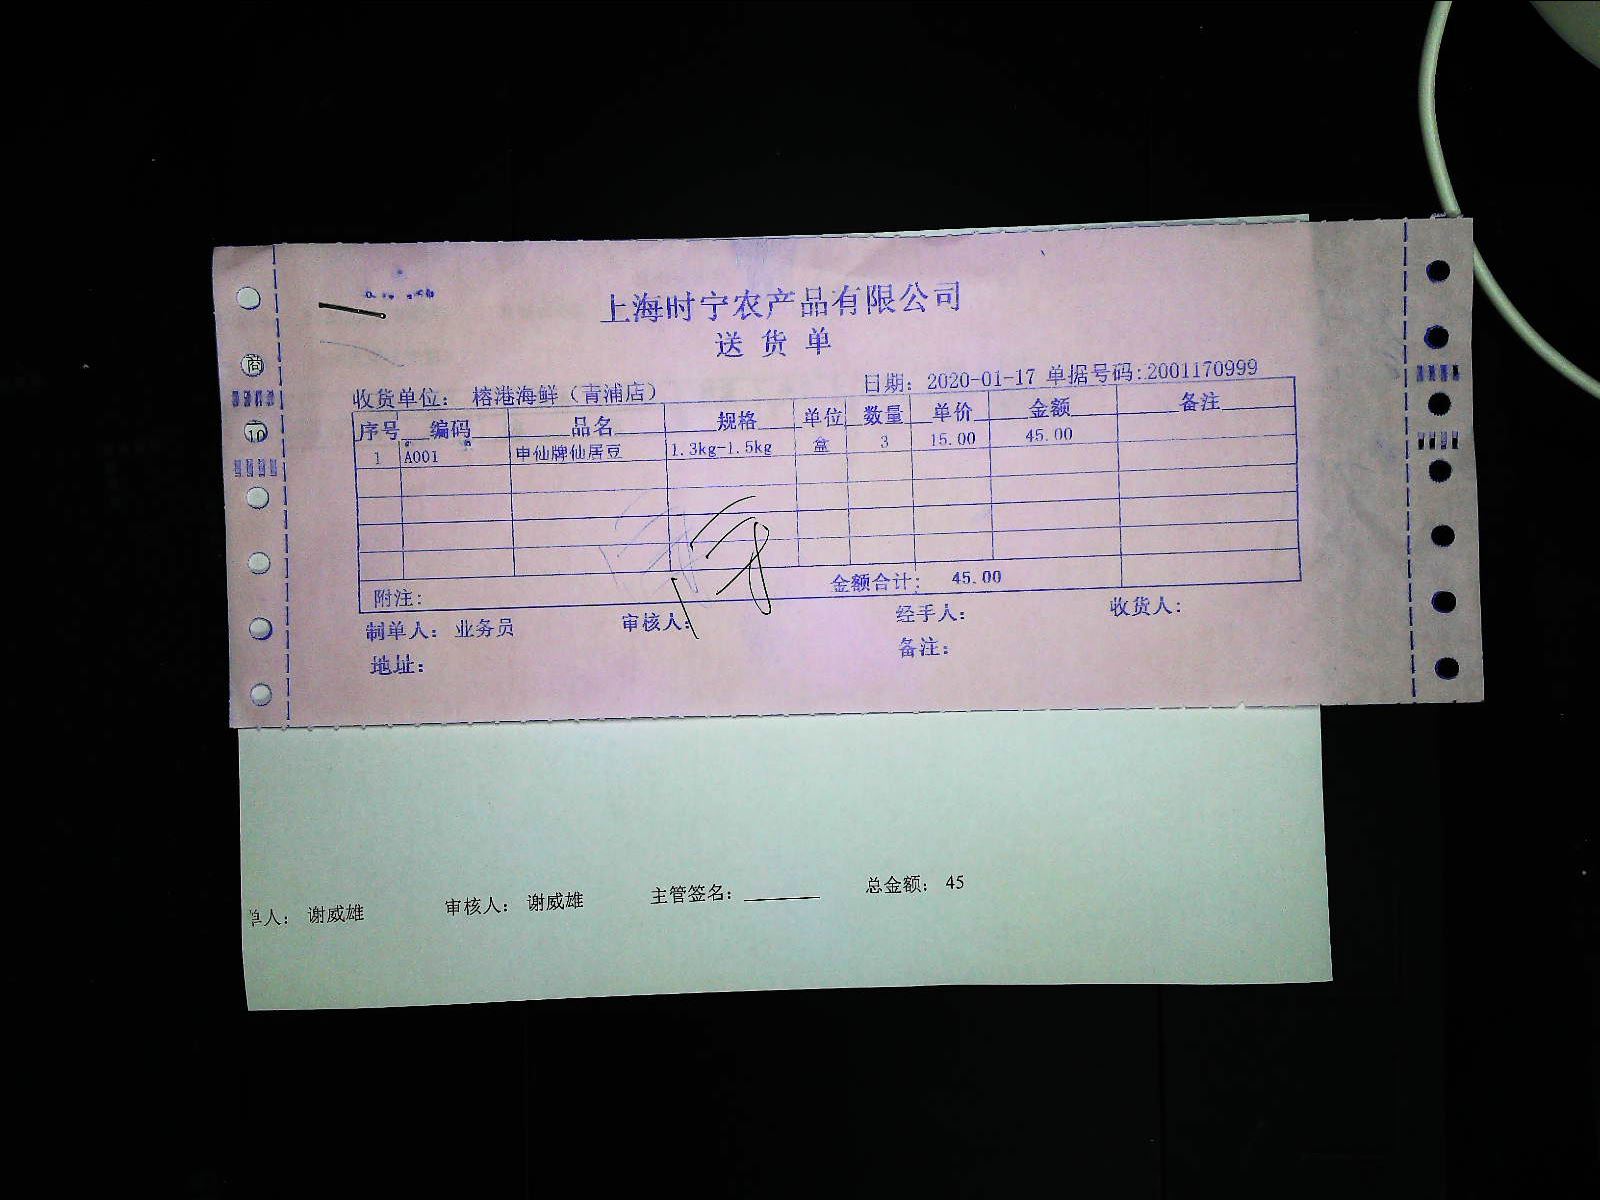 上海时宁农产品有限公司
送货单
收货单位： 榕港海鲜（青浦店） 日期： 2020-01-17 单据号码:2001170999
序号 编码 品名 规格 单位 数量 单价 金额 备注
1 A001 申仙牌仙居豆 1.3kg-1.5kg 盒 3 15.00 45.00
附注： 金额合计： 45.00
制单人： 业务员 审核人： 经手人： 收货人：
地址： 备注：
商
10
单人： 谢威雄 审核人： 谢威雄 主管签名： 总金额： 45